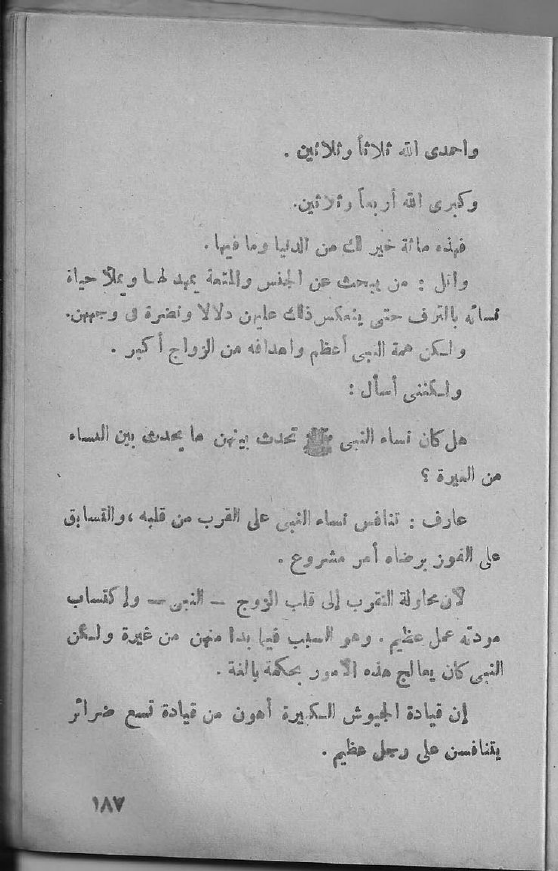 واحمدى الله ثلاثاً وثلاثين .
وكبرى الله أربعاً وثلاثين.
فهذه مائة خير لك من الدنيا وما فيها .
وائل : من يبحث عن الجنس والمتعة يمهد لها ويملأ حياة
نسائه بالترف حتى ينعكس ذلك عليهن دلالا ونضرة فى وجههن.
ولكن همة النبى أعظم واهدافه من الزواج أكبر .
ولكننى أسأل :
هل كان نساء النبى ﷺ تحدث بينهن ما يحدث بين النساء
من الغيرة ؟
عارف : تنافس نساء النبى على القرب من قلبه ، والتسابق
على الفوز برضاه أمر مشروع .
لأن محاولة التقرب إلى قلب الزوج - النبى - واكتساب
مودته عمل عظيم . وهو السبب فيما بدا منهن من غيرة ولكن
النبى كان يعالج هذه الأمور بحكمة بالغة .
إن قيادة الجيوش الكبيرة أهون من قيادة تسع ضرائر
يتنافسن على رجل عظيم .
١٨٧